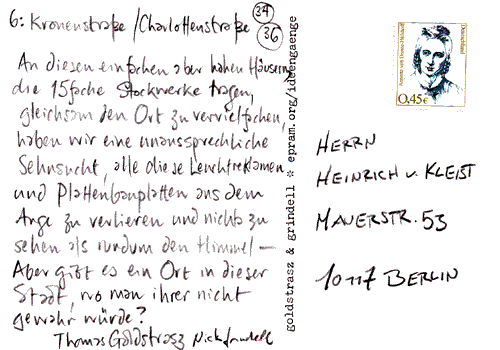 6: Kronenstraße / Charlottenstraße 34
36
An diesen einfachen aber hohen Häusern,
die 15fache Stockwerke tragen,
gleichsam den Ort zu vervielfachen,
haben wir eine unaussprechliche
Sehnsucht, alle diese Leuchtreklamen
und Plattenbauplatten aus dem
Auge zu verlieren und nichts zu
sehen als rundum den Himmel —
Aber gibt es ein Ort in dieser
Stadt, wo man ihrer nicht
gewahr würde?
Thomas Goldstrasz Nick Grindell
goldstrasz & grindell * epram.org/ideengaenge
Annette von Droste-Hülshoff
Deutschland
0,45€
HERRN
HEINRICH v. KLEIST
MAUERSTR. 53
10117 BERLIN